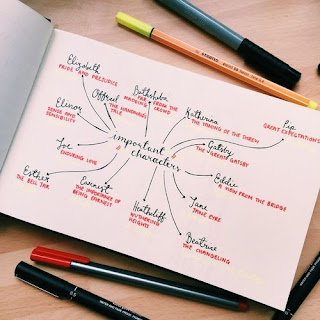 Elizabeth
PRIDE AND PREJUDICE
Offred
THE HANDMAIDS
TALE
Bathsheba
FAR FROM THE
MADDING
CROWD
Katherina
THE TAMING OF THE SHREW
Pip
GREAT EXPECTATIONS
Elinor
SENSE AND
SENSIBILITY
Gatsby
THE GREAT GATSBY
Joe
ENDURING LOVE
important
characters
Eddie
A VIEW FROM THE BRIDGE
Esther
THE BELL JAR
Earnest
THE IMPORTANCE OF
BEING EARNEST
Heathcliff
WUTHERING
HEIGHTS
Jane
JANE EYRE
Beatrice
THE CHANGELING